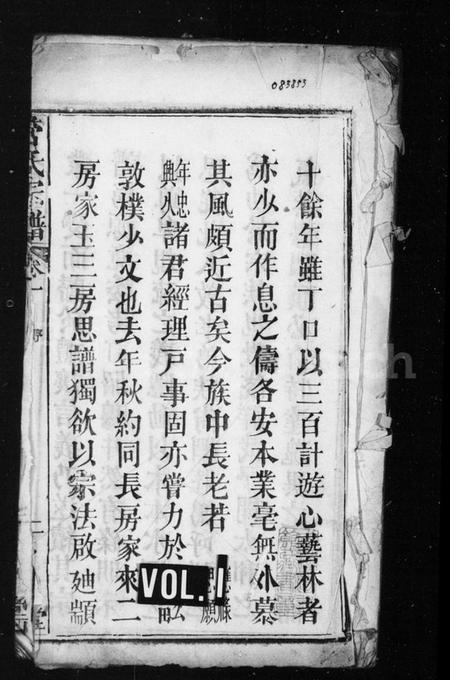 083853
十餘年雖丁口以三百計遊心藝林者
亦少而作息之儔各安本業毫無外慕
其風頗近古矣今族中長老若
年忠諸君經理戸事固亦嘗力於
敦樸少文也去年秋約同長房家來二
房家玉三房思譜獨欲以宗法啟廸顓
氏宗譜
卷一
序
二
VOL. 1